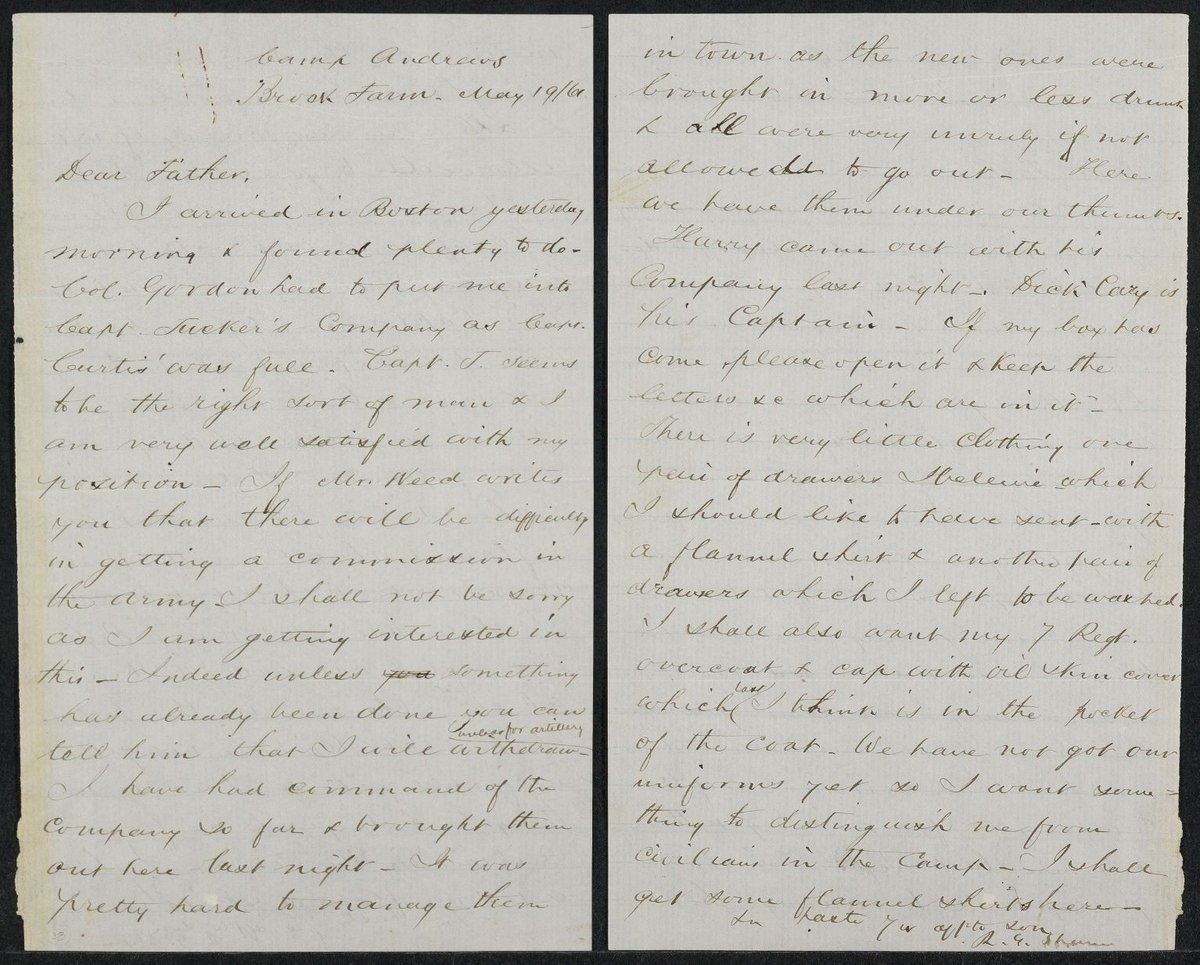 Camp Andrews
Brook Farm - May 19/61
Dear Father,
I arrived in Boston yesterday
morning & found plenty to do -
Col. Gordon had to put me into
Capt. Tucker's Company as Capt.
Curtis' was full. Capt. T. seems
to be the right sort of man & I
am very well satisfied with my
position - If Mr. Weed writes
you that there will be difficulty
in getting a commission in
the army - I shall not be sorry
as I am getting interested in
this - Indeed unless you something
has already been done you can
unless for artillery
tell him that I will withdraw -
I have had command of the
Company so far & brought them
out here last night - It was
pretty hard to manage them
in town as the new ones were
brought in more or less drunk
& all were very unruly if not
allowed to go out - Here
we have them under our thumbs.
Harry came out with his
Company last night -. Dick Cary is
his Captain - If my box has
come please open it & keep the
letters &c which are in it -
There is very little clothing one
pair of drawers I believe which
I should like to have sent - with
a flannel shirt & another pair of
drawers which I left to be washed.
I shall also want my 7 Regt.
overcoat & cap with oil skin cover
which last I think is in the pocket
of the coat - We have not got our
uniforms yet so I want some=
thing to distinguish me from
civilians in the Camp - I shall
get some flannel shirts here -
In haste Yr aff'te son
R. G. Shaw